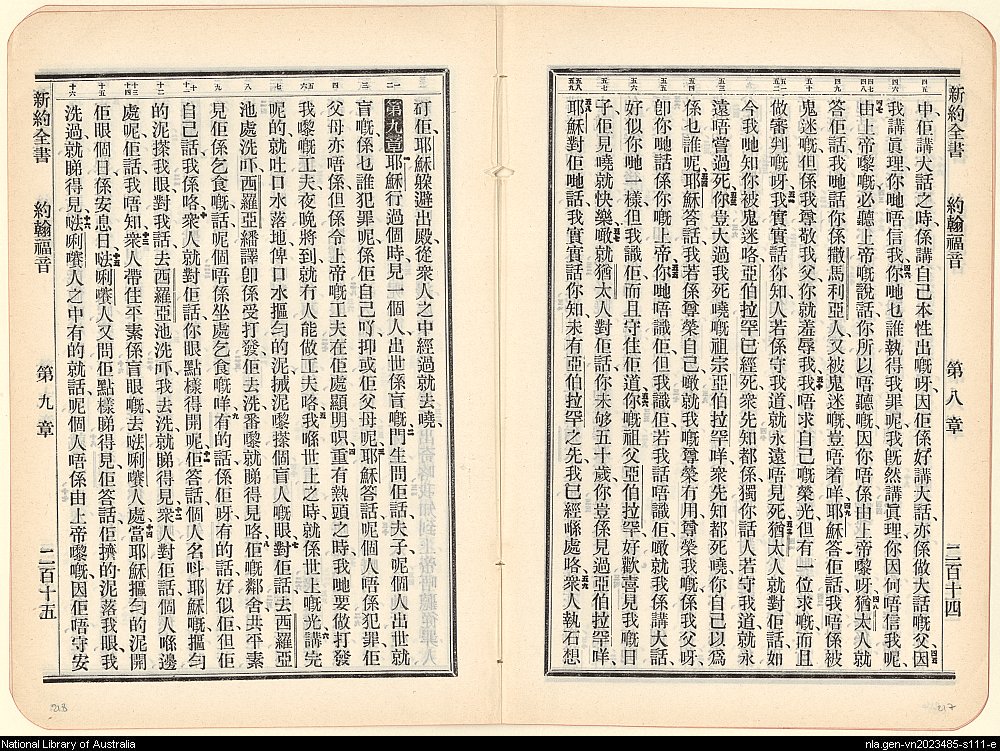 新約全書 約翰福音 第八章 二百十四
中、佢講大話之時係講自己本性出嘅呀、因佢係好講大話、亦係做大話嘅父、因
我講眞理、你哋唔信我、你哋乜誰執得我罪呢、我旣然講眞理、你因何唔信我呢、
由上帝嚟嘅必聽上帝嘅說話、你所以唔聽嘅因你唔係由上帝嚟呀、猶太人就
答佢話、我哋話你係撒馬利亞人、又被鬼迷嘅、豈唔着咩、耶穌答佢話、我唔係被
鬼迷嘅、但係我尊敬我父、你就羞辱我、我唔求自己嘅榮光、但有一位求嘅、而且
做審判嘅呀、我實實話你知、人若係守我道、就永遠唔見死、猶太人就對佢話、如
今我哋知你被鬼迷咯、亞伯拉罕已經死、衆先知都係、獨你話人若守我道、就永
遠唔嘗過死、你豈大過我死嘵嘅祖宗亞伯拉罕咩、衆先知都死嘵、你自己以爲
係乜誰呢、耶穌答話、我若係尊榮自己、噉就我嘅尊榮冇用、尊榮我嘅係我父呀、
卽你哋話係你嘅上帝、你哋唔識佢、但我識佢、若我話唔識佢、噉就我係講大話、
好似你哋一樣、但我識佢、而且守住佢道、你嘅祖父亞伯拉罕好歡喜見我嘅日
子、佢見嘵就快樂噉、就猶太人對佢話、你未够五十歲、你豈係見過亞伯拉罕咩、
耶穌對佢哋話、我實實話你知、未有亞伯拉罕之先、我已經喺處咯、衆人執石想
新約全書 約翰福音 第九章 二百十五
矴佢、耶穌躱避出殿、從衆人之中經過、就去嘵、
第九章 耶穌行過個時、見一個人出世係盲嘅、門生問佢話、夫子、呢個人出世就
盲嘅、係乜誰犯罪呢、係佢自己吖、抑或佢父母呢、耶穌答話、呢個人唔係犯罪、佢
父母亦唔係、但係令上帝嘅工夫在佢處顯明呮、重有熱頭之時、我哋要做打發
我嚟嘅工夫、夜晚將到、就冇人能做工夫咯、我喺世上之時、就係世上嘅光、講完
呢的、就吐口水落地、俾口水搵勻的泥、搣泥嚟搽個盲人嘅眼、對佢話、去西羅亞
池處洗吓、西羅亞繙譯卽係受打發、佢去洗番嚟、就睇得見咯、佢嘅鄰舍共平素
見佢係乞食嘅、話呢個唔係坐處乞食嘅咩、有的話係佢呀、有的話好似佢、但佢
自己話我係咯、衆人就對佢話、你眼點樣得開呢、佢答話、個人名呌耶穌嘅搵勻
的泥搽我眼、對我話、去西羅亞池洗吓、我去洗就睇得見、衆人對佢話、個人喺邊
處呢、佢話我唔知、衆人帶住平素係盲眼嘅、去㕸唎㘔人處、當耶穌搵勻的泥開
佢眼個日、係安息日、㕸唎㘔人又問佢點樣睇得見、佢答話、佢擠的泥落我眼、我
洗過就睇得見、㕸唎㘔人之中、有的就話、呢個人唔係由上帝嚟嘅、因佢唔守安
218
217
National Library of Australia
nla.gen-vn2023485-s111-e